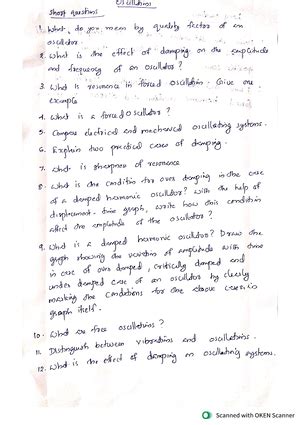 Oscillations
Short questions
1. What do you mean by quality factor of an
oscillator.
2. What is the effect of damping on the amplitude
and frequency of an oscillator?
3. What is resonance in forced oscillation. Give one
example
4. What is a forced oscillator?
5. Compare electrical and mechanical oscillating systems.
6. Explain two practical cases of damping.
7. What is sharpness of resonance
8. What is the condition for over damping in the case
of a damped harmonic oscillator? With the help of
displacement-time graph, write how this condition
affect the amplitude of the oscillator?
9. What is a damped harmonic oscillator? Draw the
graph showing the variation of amplitude with time
in case of over damped, critically damped and
under damped case of an oscillator by clearly
marking the conditions for the above cases in
graph itself.
10. What are free oscillations?
11. Distinguish between vibrations and oscillations.
12. What is the effect of damping on oscillating systems.
Scanned with OKEN Scanner